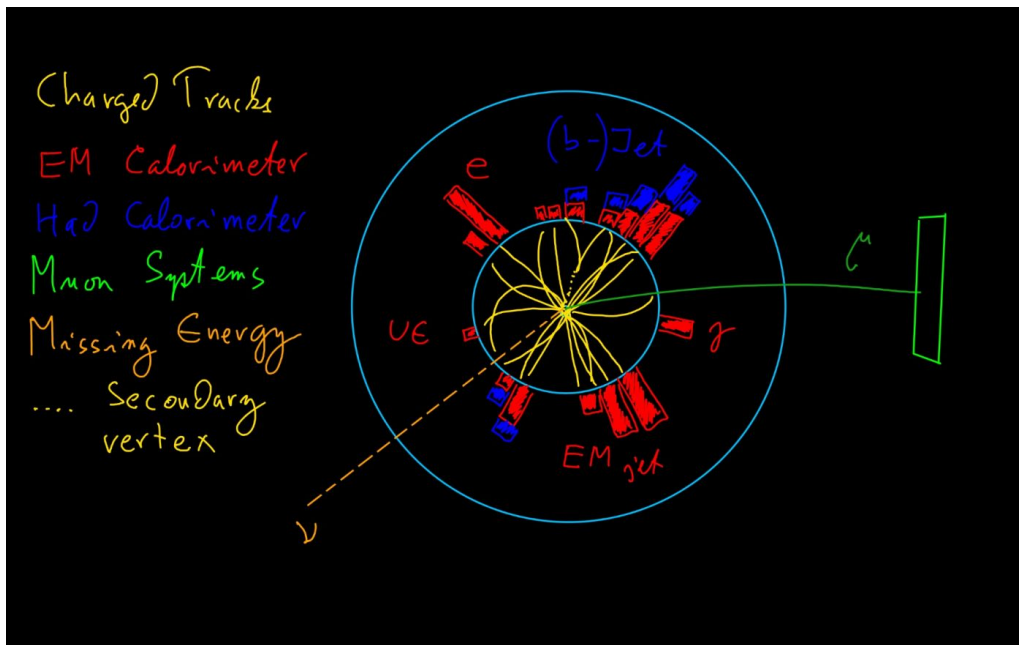 Charged Tracks
EM Calorimeter
Had Calorimeter
Muon Systems
Missing Energy
.... Secondary
vertex
(b-)Jet
e
μ
UE
γ
EM jet
ν